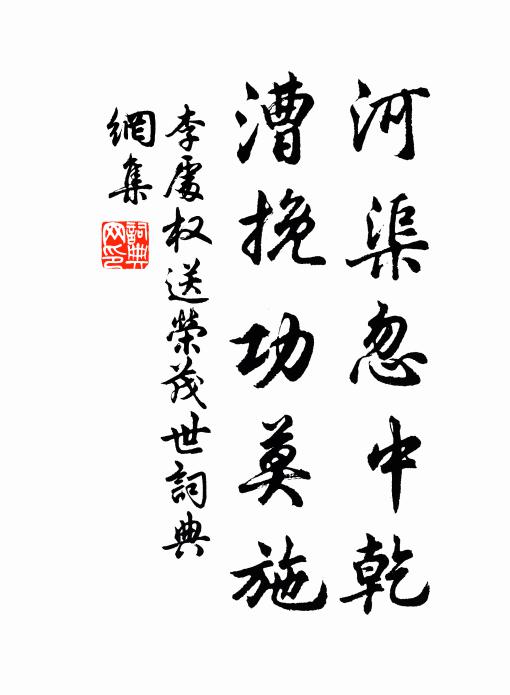 河渠忽中乾
漕挽功莫施
李處权送榮茂世詞典
網集
詞典网印